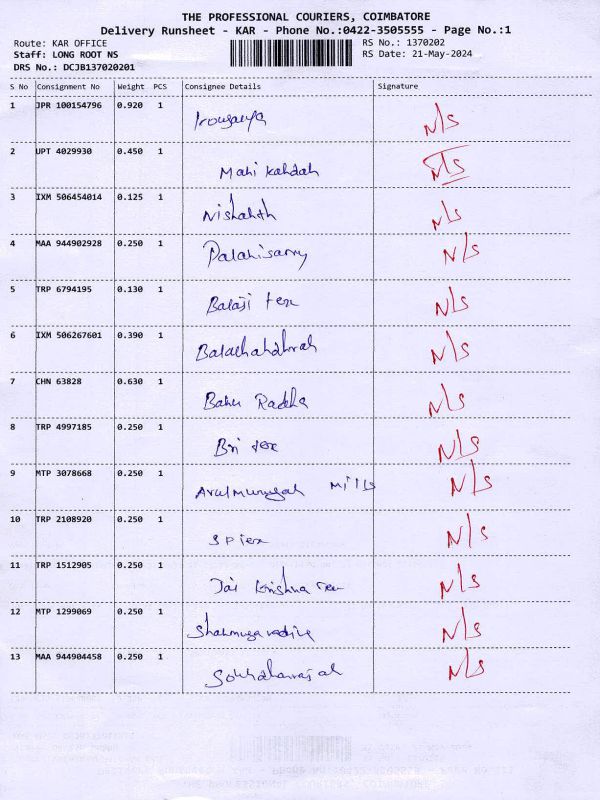 THE PROFESSIONAL COURIERS, COIMBATORE
Delivery Runsheet - KAR - Phone No.:0422-3505555 - Page No.:1
Route: KAR OFFICE RS No.: 1370202
Staff: LONG ROOT NS RS Date: 21-May-2024
DRS No.: DCJB137020201
S No Consignment No Weight PCS Consignee Details Signature
1 JPR 100154796 0.920 1 N/S
2 UPT 4029930 0.450 1 Mahi Kahdah N/S
3 IXM 506454014 0.125 1 Nishahth N/S
4 MAA 944902928 0.250 1 Palahisamy N/S
5 TRP 6794195 0.130 1 Balaji tex N/S
6 IXM 506267601 0.390 1 Balachahdhrah N/S
7 CHN 63828 0.630 1 Bahu Radha N/S
8 TRP 4997185 0.250 1 Bri tex N/S
9 MTP 3078668 0.250 1 Arulmurugah Mills N/S
10 TRP 2108920 0.250 1 SP tex N/S
11 TRP 1512905 0.250 1 Jai Krishna tex N/S
12 MTP 1299069 0.250 1 Shahmugavadive N/S
13 MAA 944904458 0.250 1 N/S